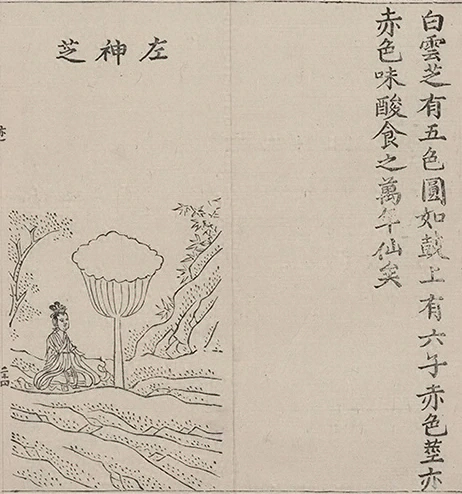 白雲芝有五色圓如鼓上有六子赤色莖亦
赤色味酸食之萬年仙矣
左神芝